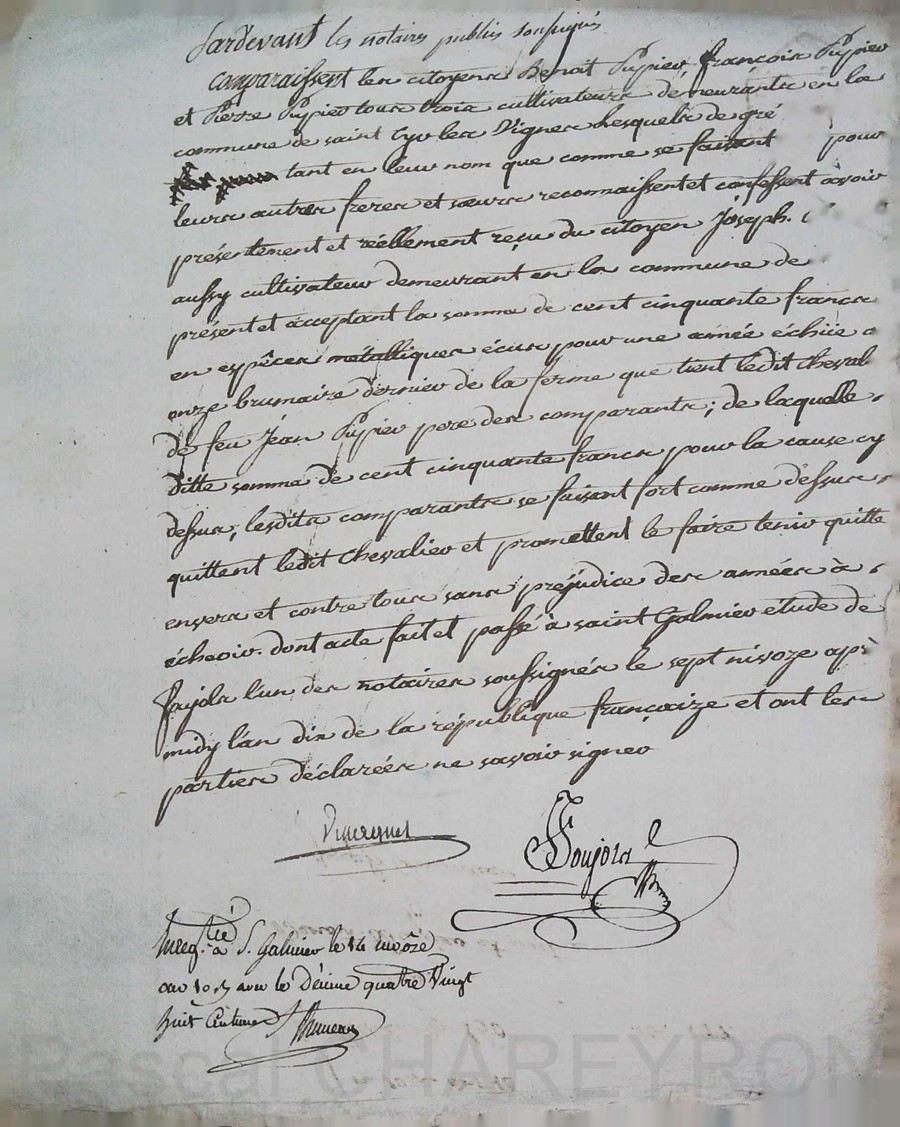 Pardevant les notaires publics soussignés
comparaissent les citoyens Benoit Pupier, françois Pupier
et Pierre Pupier tous trois cultivateurs demeurants en la
commune de saint Cyr les Vignes lesquels de gré
tant en leur nom que comme se faisant pour
leurs autres freres et sœurs reconnaissent et confessent avoir
présentement et réellement reçu du citoyen Joseph
aussy cultivateur demeurant en la commune de
présent et acceptant la somme de cent cinquante francs
en espêces métalliques écus pour une année échüe
onze brumaire dernier de la ferme que tient ledit cheval
de feu Jean Pupier pere des comparants; de laquelle
ditte somme de cent cinquante francs pour la cause cy
dessus, lesdits comparants se faisant fort comme dessus
quittent ledit Chevalier et promettent le faire tenir quitte
envers et contre tous sans préjudice des années à
écheoir. dont acte fait et passé à saint Galmier étude de
l'un des notaires soussignés le sept nivoze après
midy l'an dix de la république françaize et ont les
parties déclarées ne savoir signer
Enregistré à S. Galmier le 14 nivôse
an 10 avec le décime quatre vingt
huit Centimes
Pascal CHAREYRON